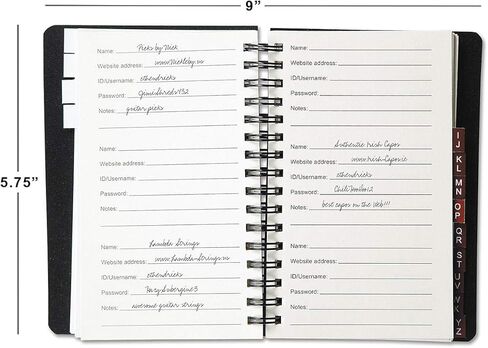 9"
5.75"
Name: Picks by Nick
Website address: www.Nickleby.us
ID/Username: ethendricks
Password:
Notes: guitar picks
Name:
Website address:
ID/Username:
Password:
Notes:
Name: Lambda Strings
Website address: www.Lambda-Strings.us
ID/Username: ethendricks
Password:
Notes: awesome guitar strings
Name:
Website address:
ID/Username:
Password:
Notes:
Name: Authentic Irish Capos
Website address: www.Irish-Capos.ie
ID/Username: ethendricks
Password:
Notes: best capos on the Web!!!
Name:
Website address:
ID/Username:
Password:
Notes:
IJ
KL
MN
OP
QR
ST
UV
WX
YZ